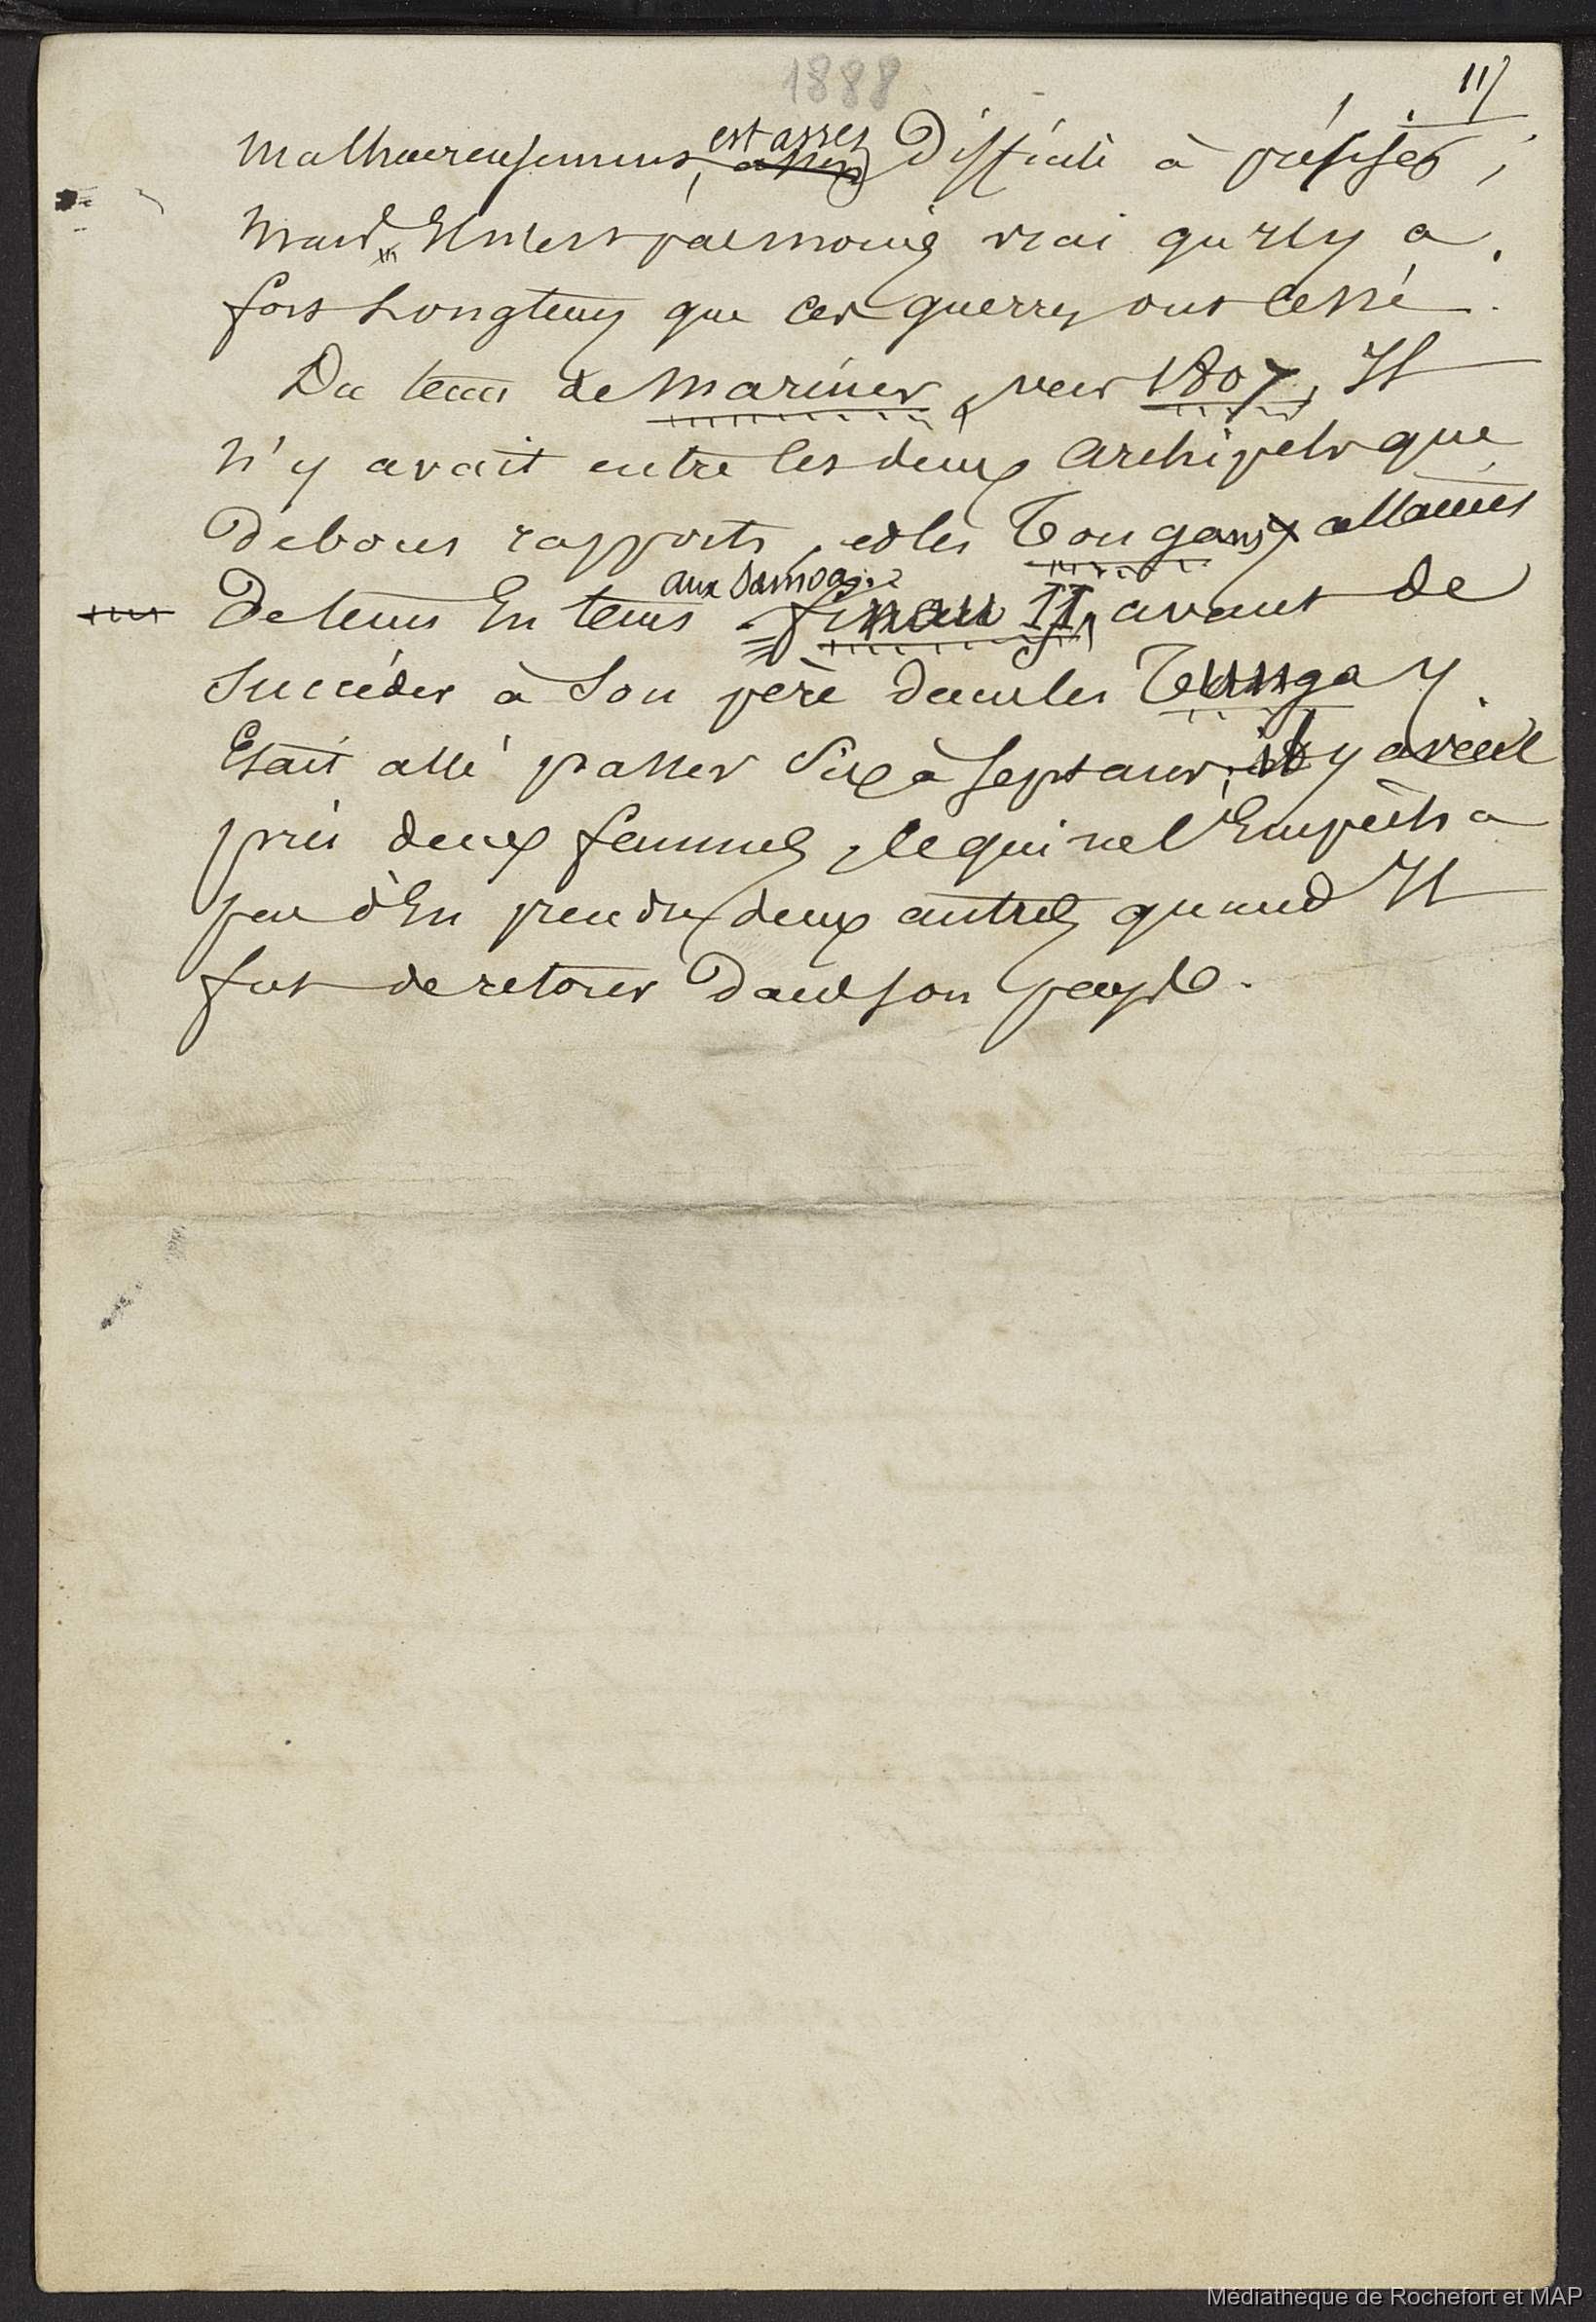 1888
11
est assez
malheureusement, assez difficile à préciser ;
mais il n'est pas moins vrai qu'il y a
fort longtems que ces guerres ont cessé.
Du tems de Mariner, vers 1807, Il
n'y avait entre les deux archipels que
de bons rapports, et les Tongans allaient
aux Samoa.
de tems En tems Finau II, avant de
succéder à son père dans les Tunga
Etait allé passer six à sept ans; il y avait
pris deux femmes, ce qui ne l'Empêcha
pas d'En prendre deux autres quand Il
fut de retour dans son pays.
Médiathèque de Rochefort et MAP